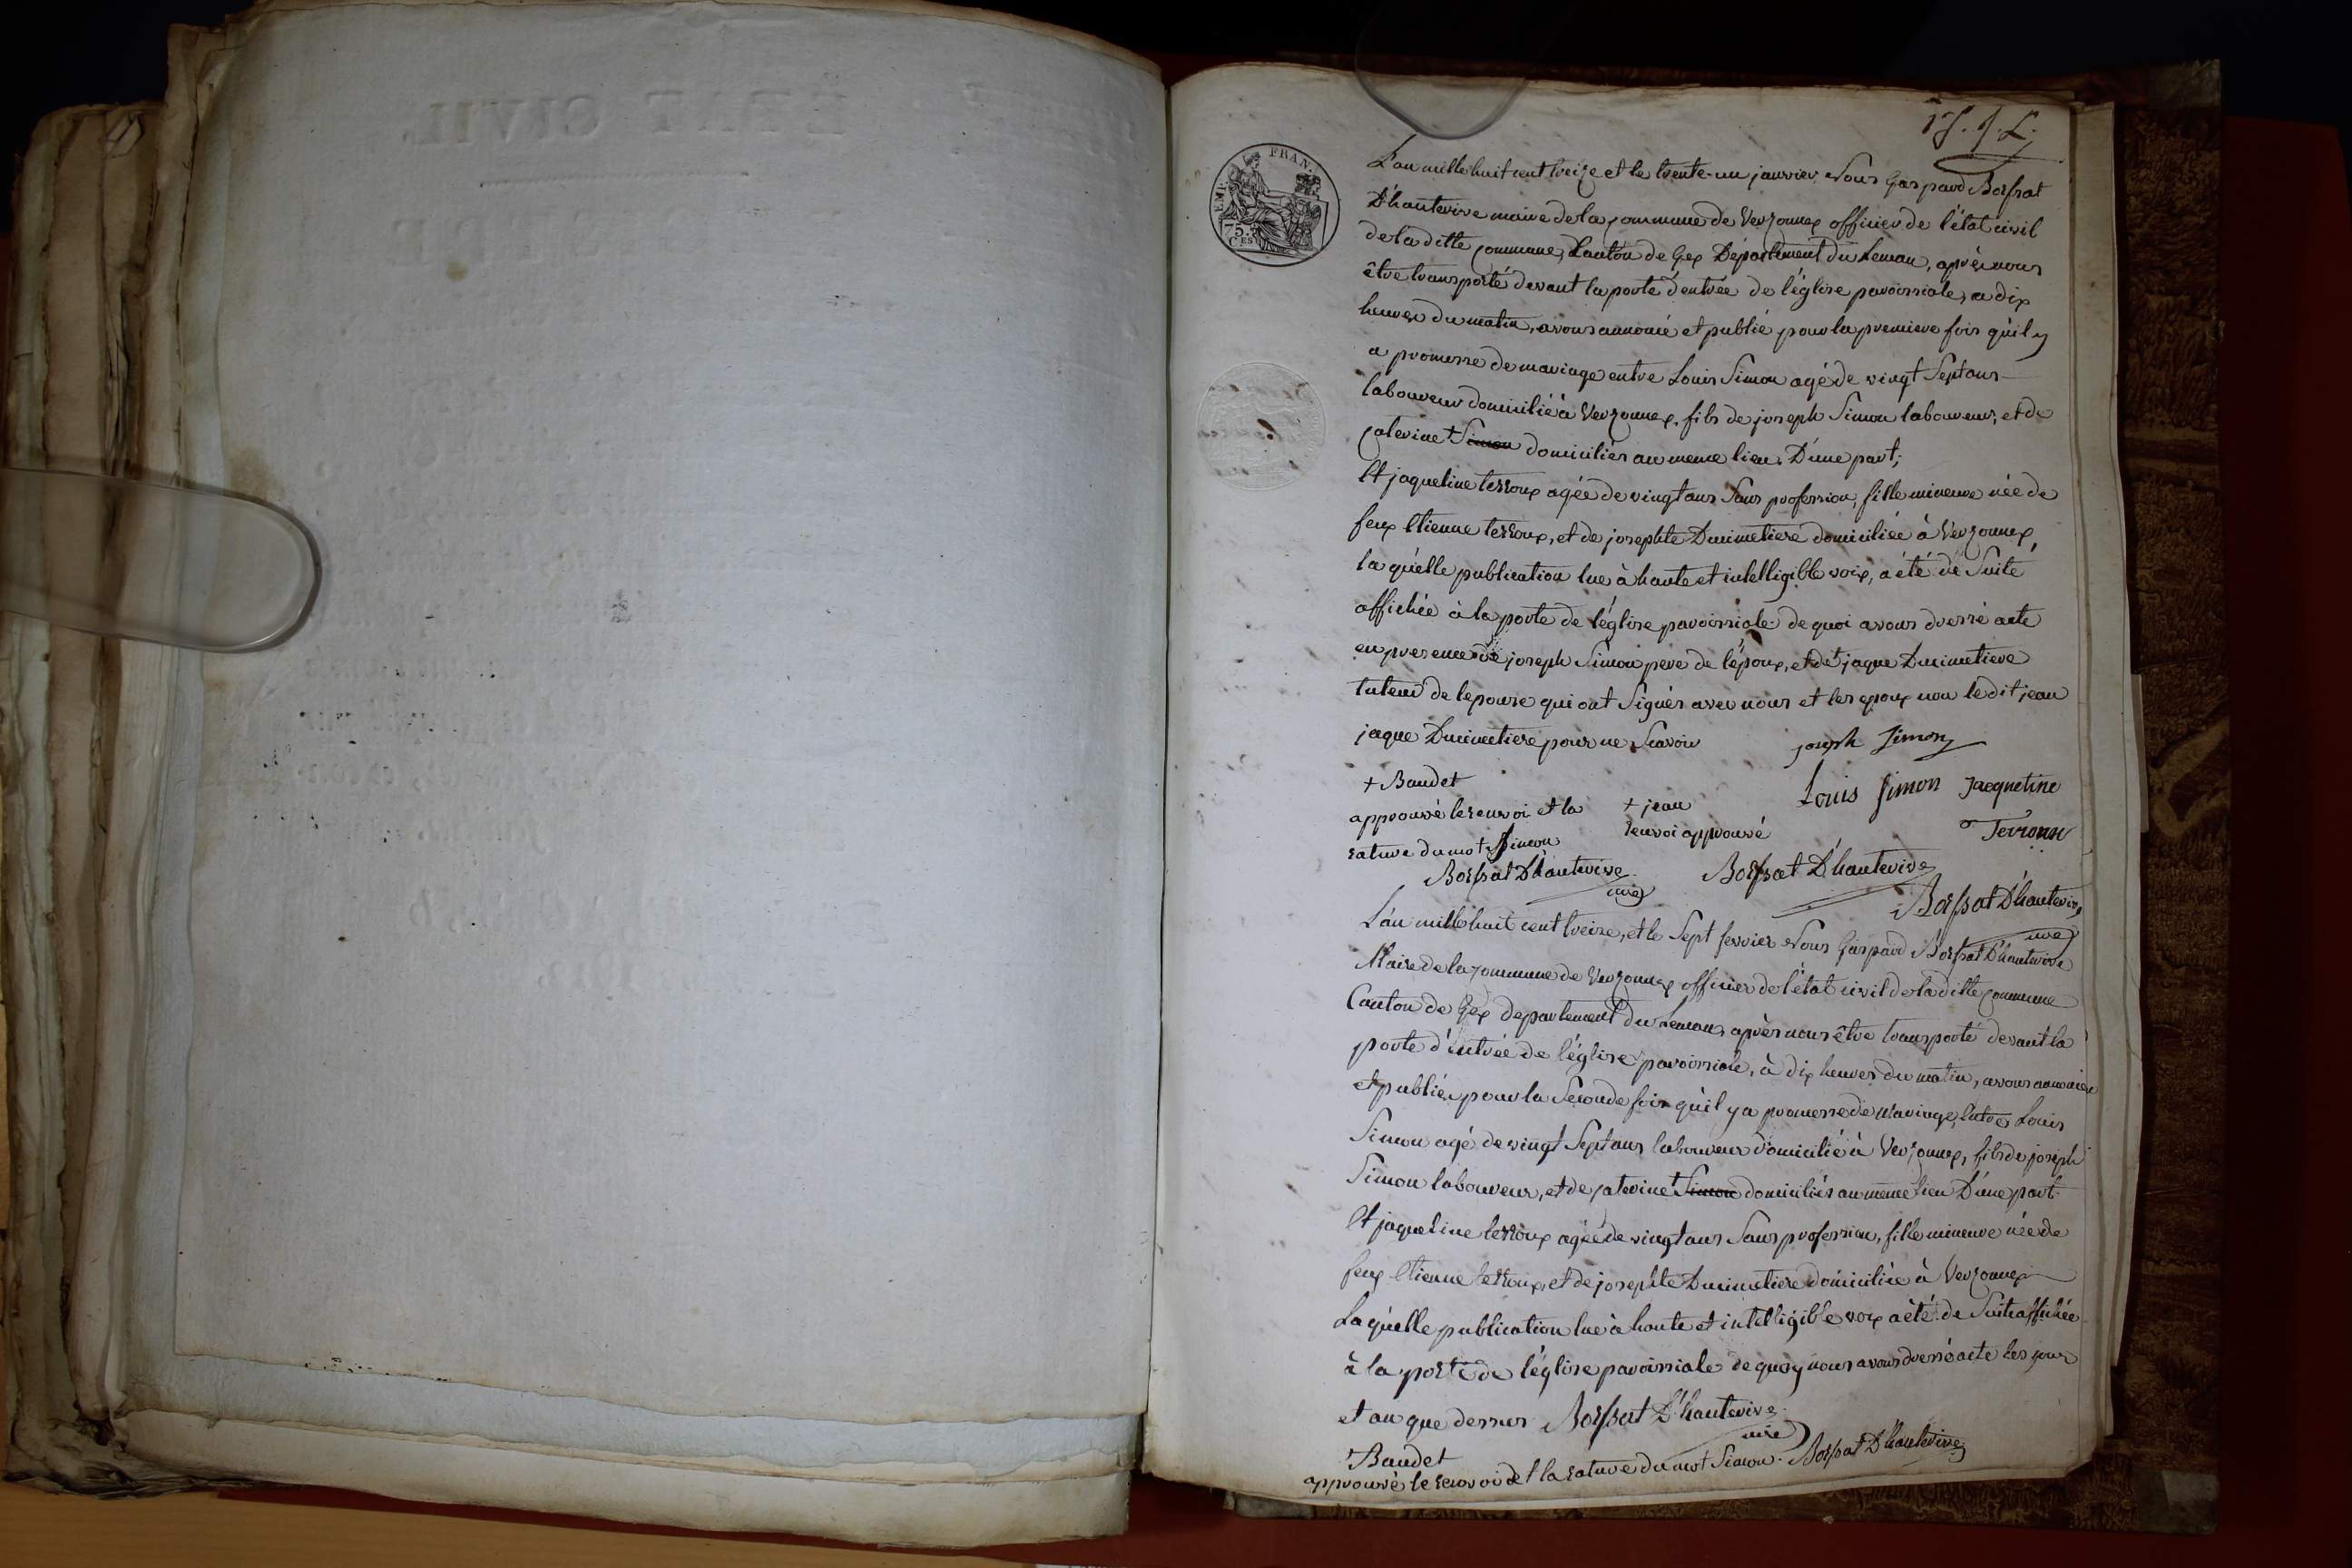 L'an mille huit cent treize et le trente-un janvier Nous Gaspard Borssat
D'hauterive maire de la commune de Versonnex officier de l'état civil
de la ditte commune, Canton de Gex Département du Leman, après nous
être transporté devant la porte d'entrée de l'église paroissiale, a dix
heures du matin, avons annoncé et publié pour la premiere fois qu'il y
a promesse de mariage entre Louis Simon agé de vingt Sept ans
laboureur domicilié à Versonnex, fils de joseph Simon laboureur, et de
caterine + Simon domiciliés au meme lieu D'une part;
Et jaqueline terroux agée de vingt ans Sans profession, fille mineure née de
feux Etienne terroux, et de josephte Ducimetiere domiciliée à Versonnex,
la qu'elle publication lue à haute et intelligible voix, a été de Suite
affichée à la porte de l'église paroissiale de quoi avons dressé acte
en presence de joseph Simon pere de l'époux, et de + jaque Ducimetiere
tuteur de l'epouse qui ont Signés avec nous et les epoux non le dit jean
jaque Ducimetiere pour ne Scavoir
joseph Simon
+ Baudet
approuvé le renvoi et la
rature du mot Simon
+ jean
renvoi approuvé
Louis Simon Jacqueline
Terroux
Borssat D'hauterive
mre
Borssat D'hauterive
Borssat D'hauterive
mre
L'an mille huit cent treize, et le Sept fevrier Nous Gaspard Borssat D'hauterive
Maire de la commune de Versonnex officier de l'état civil de la ditte commune
Canton de Gex departement du Leman, après nous être transporté devant la
porte d'entrée de l'église paroissiale, à dix heures du matin, avons annoncé
et publié pour la Seconde fois qu'il y a promesse de Mariage, Entre Louis
Simon agé de vingt Sept ans laboureur domicilié à Versonnex, fils de joseph
Simon laboureur, et de caterine + Simon domiciliés au même lieu D'une part.
Et jaqueline terroux agée de vingt ans Sans profession, fille mineure née de
feux Etienne terroux, et de josephte Ducimetiere domiciliée à Versonnex
La qu'elle publication lue à haute et intelligible voix a été de Suite affichée
à la porte de l'église paroissiale de quoy nous avons dressé acte les jour
et an que dessus Borssat D'hauterive
mre
+ Baudet
approuvé le renvoi et la rature du mot Simon. Borssat D'hauterive